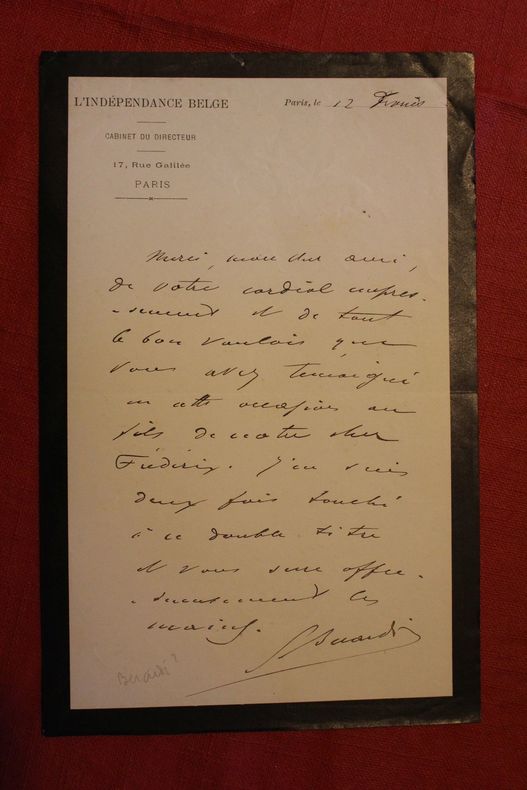 L'INDÉPENDANCE BELGE
Paris, le 12
CABINET DU DIRECTEUR
17, Rue Galilée
PARIS
Merci, mon cher ami,
de votre cordial empres-
-sement et de tout
le bon vouloir que
vous avez témoigné
en cette occasion au
fils de notre cher
Frédérix. J'en suis
deux fois touché
à ce double titre
et vous serre affec-
-tueusement les
mains.
Berardi
Berardi ?